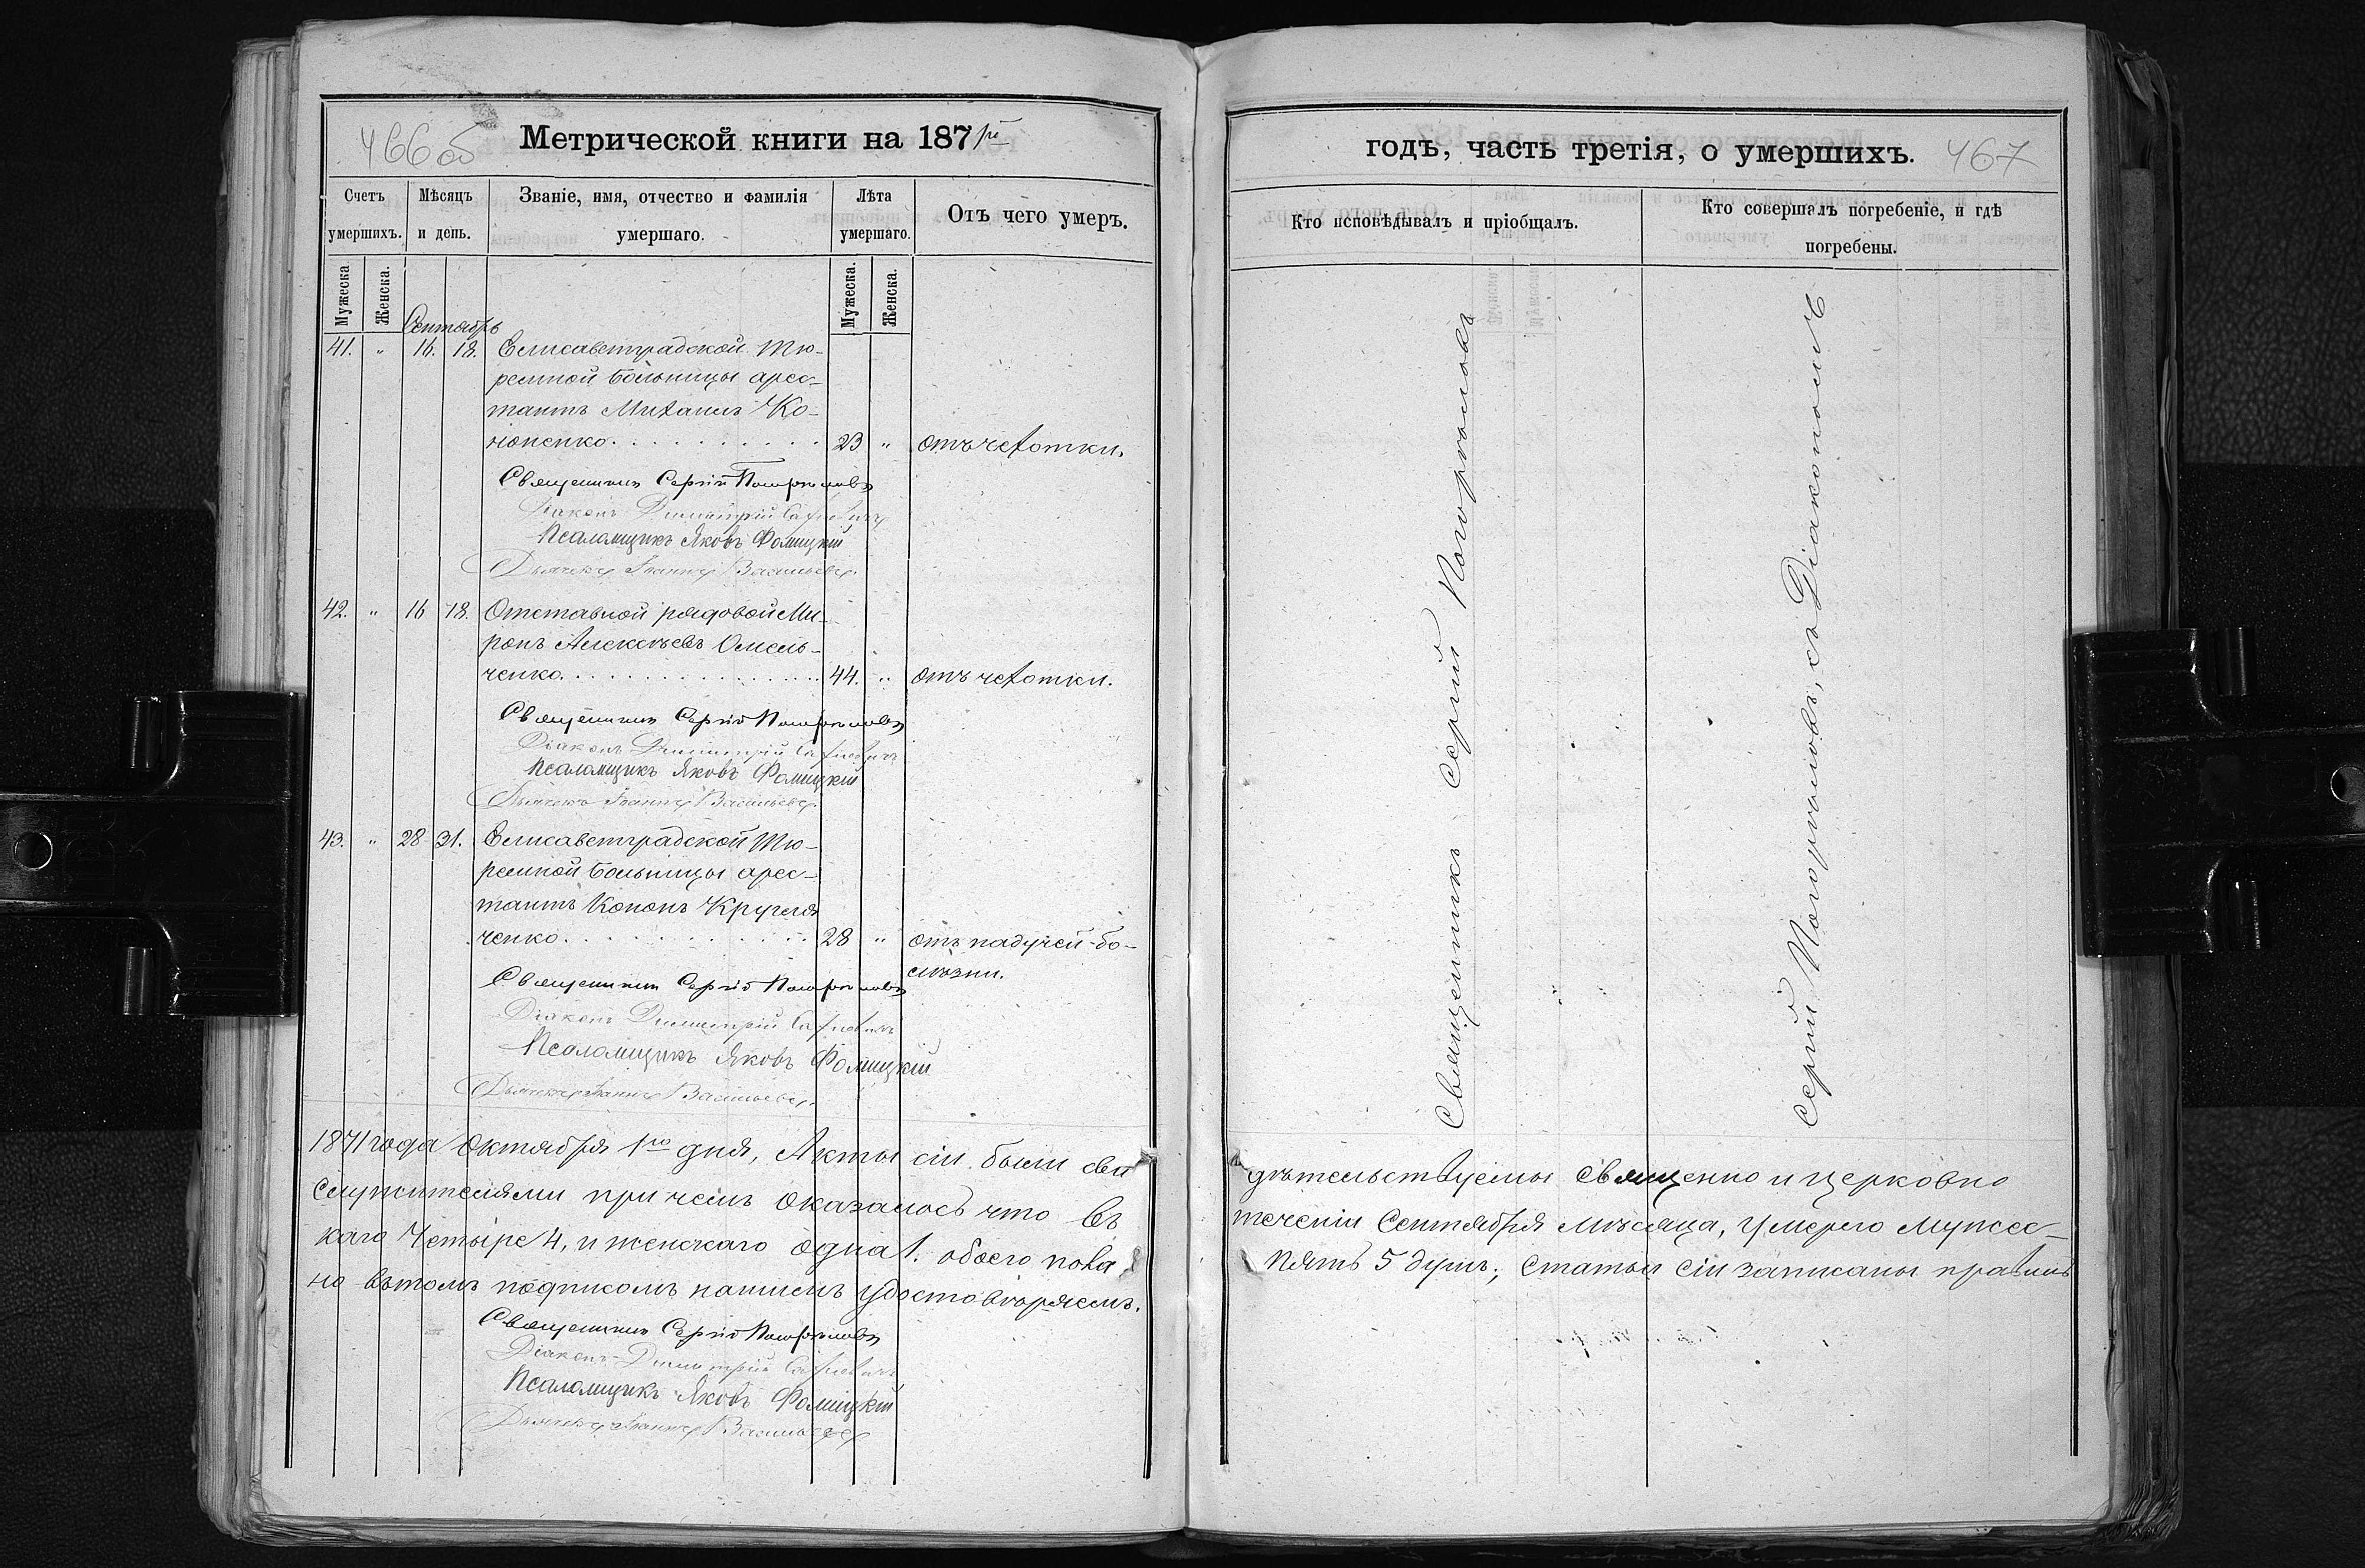 466 об
Метрической книги на 1871й
Счетъ умершихъ.
Мѣсяцъ и день.
Званіе, имя, отчество и фамилія умершаго.
Лѣта умершаго.
Отъ чего умеръ.
Мужеска
Женска.
Мужеска.
Женска.
Сентябрь
41. " 16. 18. Елисаветградской Тю-
ремной больницы арес-
тантъ Михаилъ Ко-
ноненко. 23 " отъ чахотки.
Священникъ Сергій Погорѣловъ
Діаконъ Димитрій
Псаломщикъ Яковъ Фомицкій
Дьячекъ Іоаннъ Васильевъ
42. " 16 18. Отставной рядовой Ми-
ронъ Алексѣевъ Омель-
ченко. 44. " отъ чахотки.
Священникъ Сергій Погорѣловъ
Діаконъ Димитрій
Псаломщикъ Яковъ Фомицкій
Дьячекъ Іоаннъ Васильевъ
43. " 28 31. Елисаветградской Тю-
ремной больницы арес-
тантъ Кононъ Кругля
ченко. 28 " отъ падучей бо-
лѣзни.
Священникъ Сергій Погорѣловъ
Діаконъ Димитрій
Псаломщикъ Яковъ Фомицкій
Дьячекъ Іоаннъ Васильевъ
1871 года Октября 1го дня, Акты сіи были сви
служителями при чемъ оказалось что въ
каго Четыре 4, и женскаго одна 1. обоего пола
но въ томъ подписомъ нашимъ удостовѣряемъ.
Священникъ Сергій Погорѣловъ
Діаконъ Димитрій
Псаломщикъ Яковъ Фомицкій
Дьячекъ Іоаннъ Васильевъ
годъ, часть третія, о умершихъ.
467
Кто исповѣдывалъ и пріобщалъ.
Кто совершалъ погребеніе, и гдѣ
погребены.
Священникъ Сергій Погорѣловъ
Сергій Погорѣловъ, съ Діакономъ
дѣтельствуемы священно и церковно
теченіи Сентября мѣсяца, умерло мужес-
пять 5 душъ; Статьи сіи записаны правиль